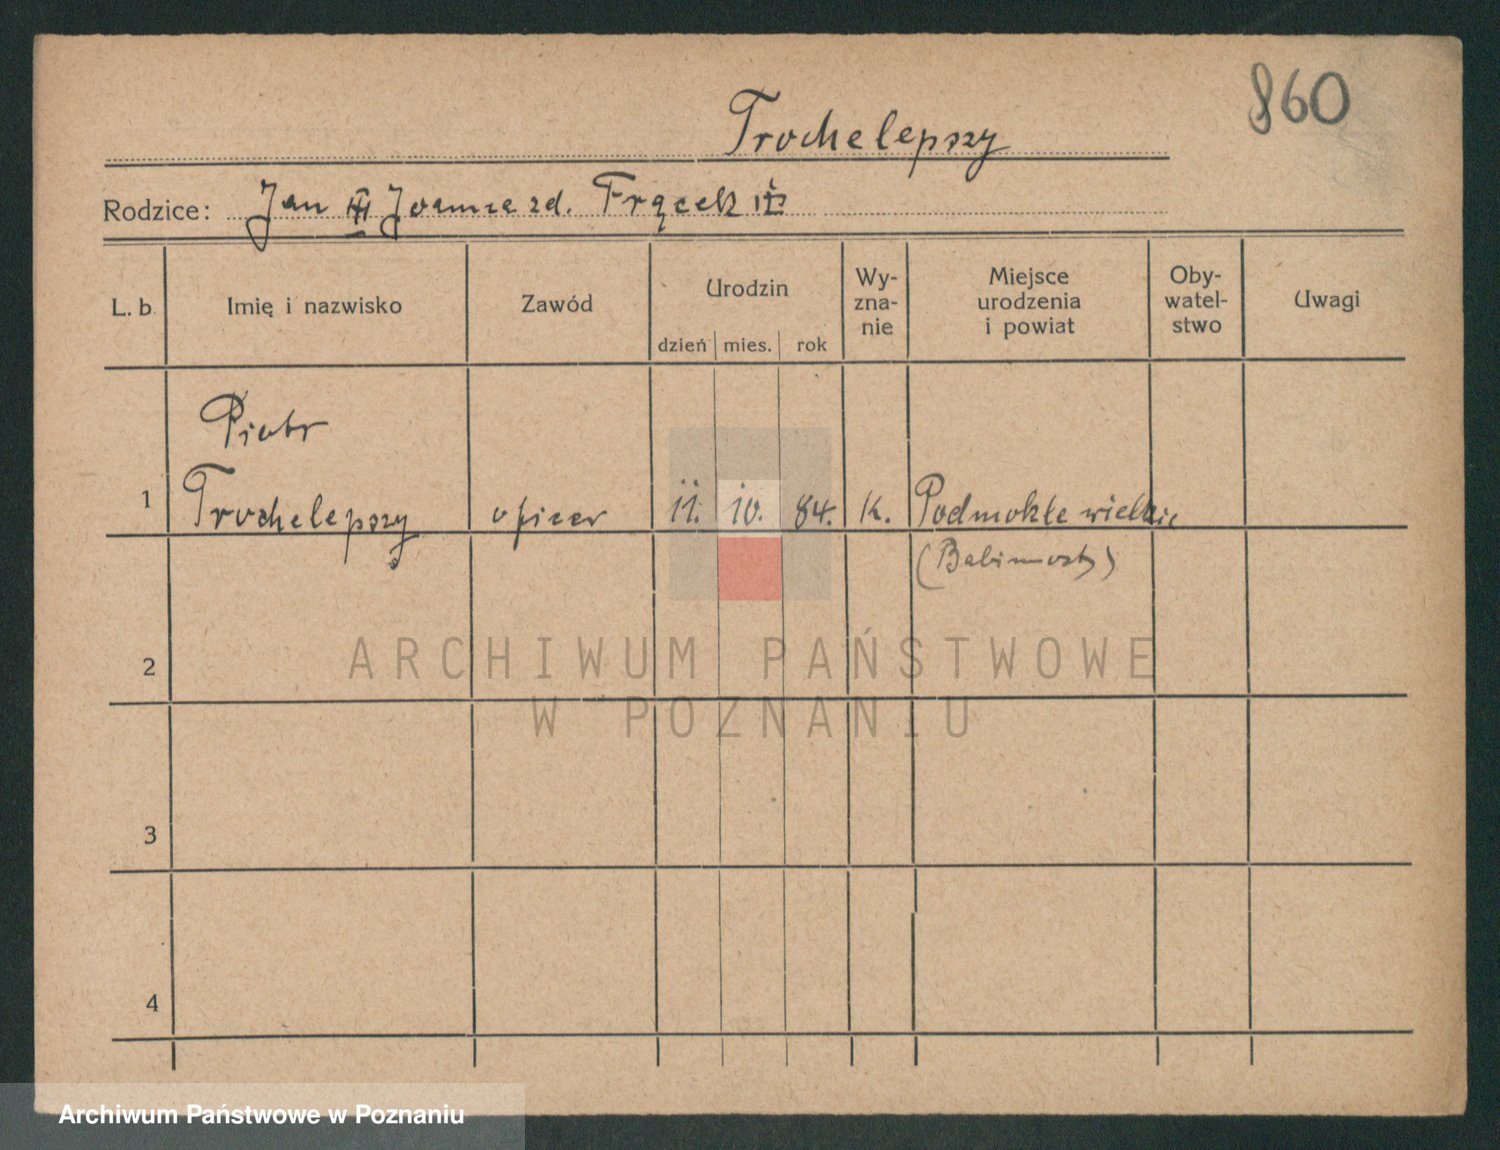 860
Trochelepszy
Rodzice: Jan Joanna zd. Frącek
L. b. Imię i nazwisko Zawód Urodzin dzień mies. rok Wy-zna-nie Miejsce urodzenia i powiat Oby-watel-stwo Uwagi
Piotr
1 Trochelepszy oficer 11. 10. 84. K. Podmokle wielkie
(Babimost)
2
ARCHIWUM PAŃSTWOWE
W POZNANIU
3
4
Archiwum Państwowe w Poznaniu